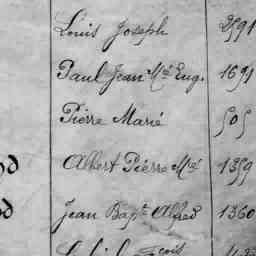 Louis Joseph 2591
Paul Jean Mie Eug. 1691
Pierre Marie 505
Albert Pierre Mel 1359
Jean Bapte Alfred 1360